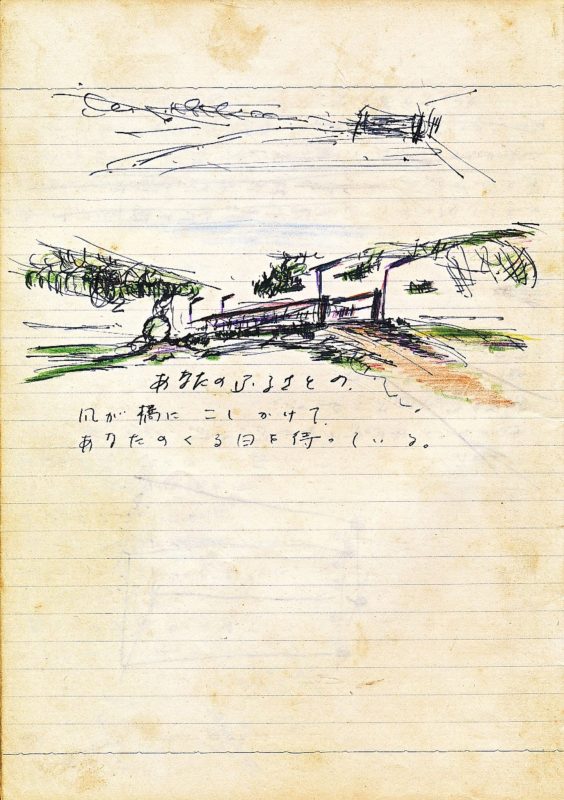 あなたのふるさとの
風が橋に こしかけて
あなたのくる日を待っている。